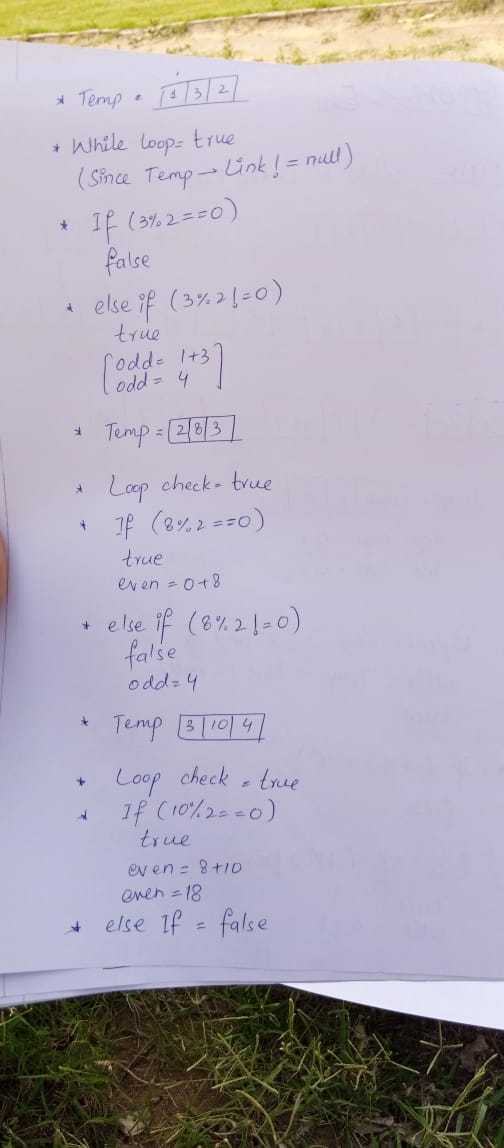 * Temp = [1|3|2]
* While loop= true
(Since Temp → Link != null)
* If (3%2==0)
false
* else if (3%2!=0)
true
[odd= 1+3
odd= 4]
* Temp = [2|8|3]
* Loop check= true
* If (8%2==0)
true
even = 0+8
* else if (8%2!=0)
false
odd=4
* Temp [3|10|4]
* Loop check = true
* If (10%2==0)
true
even = 8+10
even =18
* else If = false